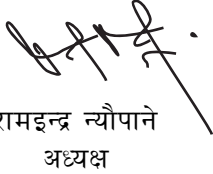 रामइन्द्र न्यौपाने
अध्यक्ष